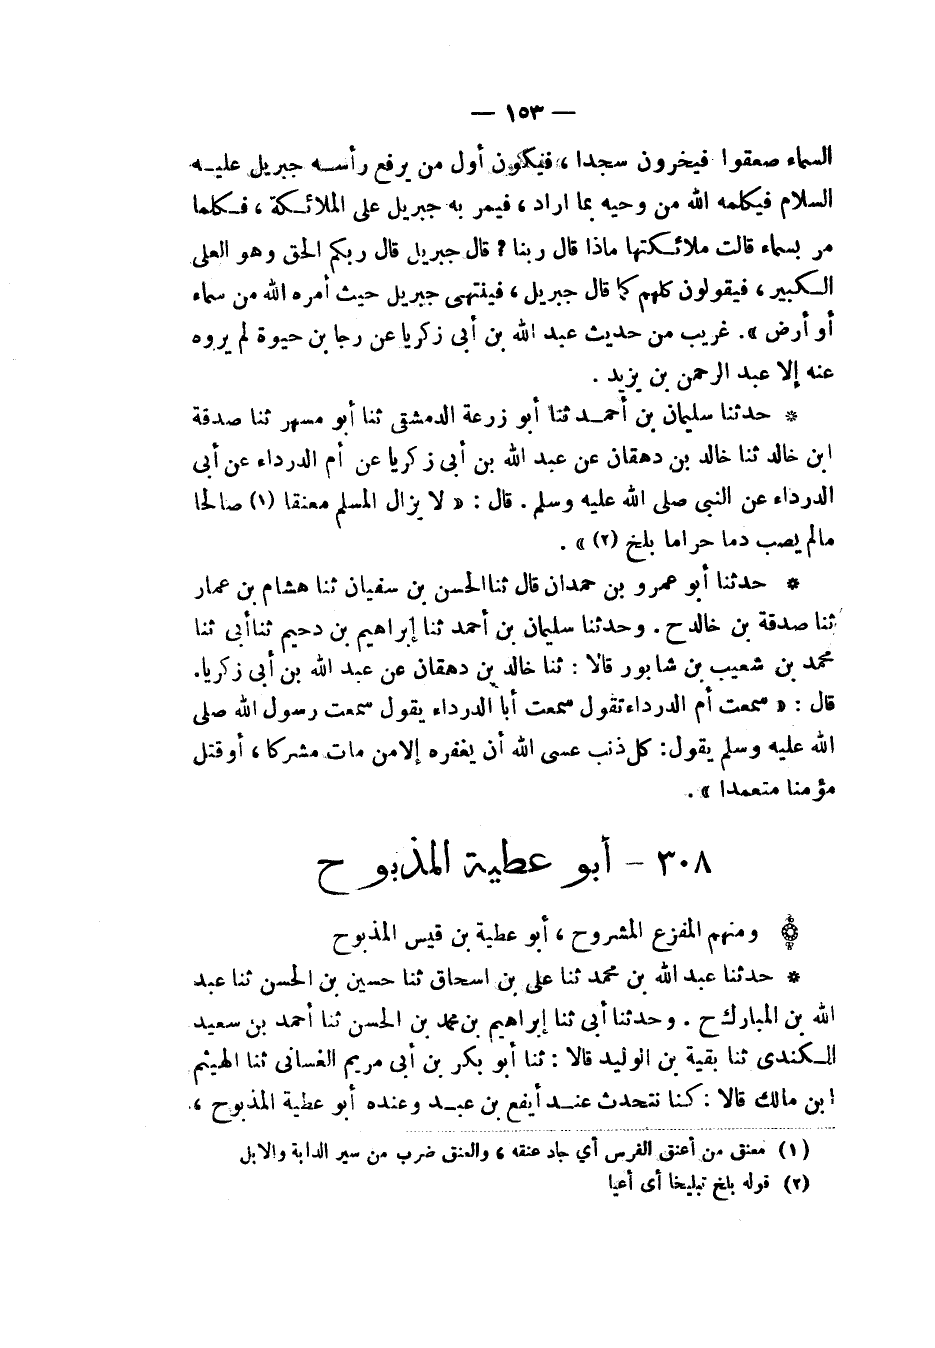 — ١٥٣ —
السماء صعقوا فيخرون سجدا ، فيكون أول من يرفع رأسه جبريل عليه
السلام فيكلمه الله من وحيه بما اراد ، فيمر به جبريل على الملائكة ، فكلما
مر بسماء قالت ملائكتها ماذا قال ربنا ؟ قال جبريل قال ربكم الحق وهو العلى
الكبير ، فيقولون كلهم كما قال جبريل ، فينتهى جبريل حيث أمره الله من سماء
أو أرض ». غريب من حديث عبد الله بن أبى زكريا عن رجا بن حيوة لم يروه
عنه إلا عبد الرحمن بن يزيد .
* حدثنا سليمان بن أحمد ثنا أبو زرعة الدمشقى ثنا أبو مسهر ثنا صدقة
ابن خالد ثنا خالد بن دهقان عن عبد الله بن أبى زكريا عن أم الدرداء عن أبى
الدرداء عن النبى صلى الله عليه وسلم . قال : « لا يزال المسلم معنقا (١) صالحا
مالم يصب دما حراما بلخ (٢) » .
* حدثنا أبو عمرو بن حمدان قال ثنا الحسن بن سفيان ثنا هشام بن عمار
ثنا صدقة بن خالد ح . وحدثنا سليمان بن أحمد ثنا إبراهيم بن دحيم ثنا أبى ثنا
محمد بن شعيب بن شابور قالا : ثنا خالد بن دهقان عن عبد الله بن أبى زكريا.
قال : « سمعت أم الدرداء تقول سمعت أبا الدرداء يقول سمعت رسول الله صلى
الله عليه وسلم يقول: كل ذنب عسى الله أن يغفره إلا من مات مشركا ، أو قتل
مؤمنا متعمدا » .
٣٠٨ – أبو عطية المذبوح
ومنهم المفزع المشروح ، أبو عطية بن قيس المذبوح
* حدثنا عبد الله بن محمد ثنا على بن اسحاق ثنا حسين بن الحسن ثنا عبد
الله بن المبارك ح . وحدثنا أبى ثنا إبراهيم بن محمد بن الحسن ثنا أحمد بن سعيد
الكندى ثنا بقية بن الوليد قالا : ثنا أبو بكر بن أبى مريم الغسانى ثنا الهيثم
ابن مالك قالا : كنا نتحدث عند أيفع بن عبد وعنده أبو عطية المذبوح ،
(١) معنق من أعنق الفرس أي جاد عنقه ، والعنق ضرب من سير الدابة والابل
(٢) قوله بلخ تبليخا أى أعيا